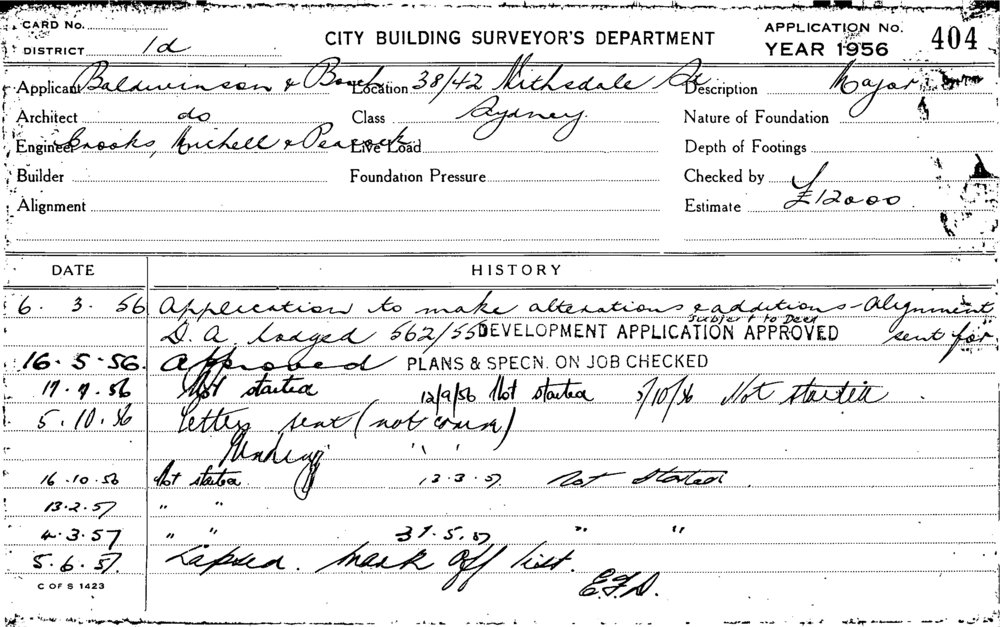 CARD No.
DISTRICT 1d
CITY BUILDING SURVEYOR'S DEPARTMENT
APPLICATION No. 404
YEAR 1956
Applicant Baldwinson & Booth Location 38/42 Nithsdale St Description Major
Architect do Class Sydney Nature of Foundation
Engineer Brooks, Michell & Peacock Live Load Depth of Footings
Builder Foundation Pressure Checked by
Alignment Estimate £12000
DATE HISTORY
6. 3. 56 Application to make alterations & additions - Alignment
subject to Deed
D. A lodged 562/55 DEVELOPMENT APPLICATION APPROVED sent for
16.5.56. Approved PLANS & SPECN. ON JOB CHECKED
17.7.56 Not started 12/9/56 Not started 5/10/56 Not started
5.10.56 letter sent (not comm)
" "
16.10.56 Not started 13.3.57 Not Started
13.2.57 " "
4.3.57 " " 31.5.57 " "
5.6.57. Lapsed. Mark off list.
E.F.D.
C OF S 1423